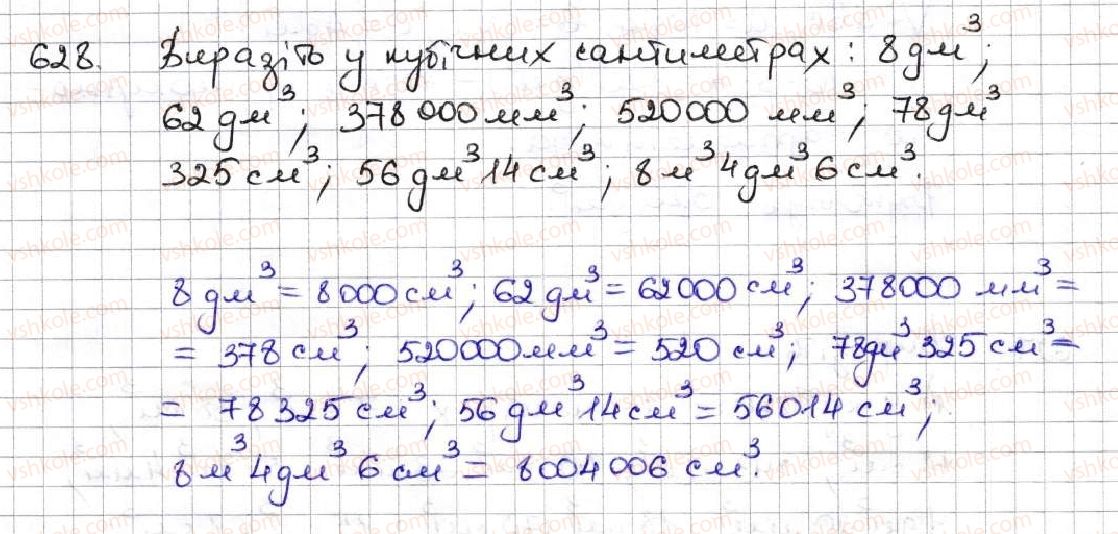 628. Виразіть у кубічних сантиметрах: 8 дм³;
62 дм³; 378 000 мм³; 520000 мм³; 78 дм³
325 см³; 56 дм³ 14 см³; 8 м³ 4 дм³ 6 см³.
8 дм³ = 8000 см³; 62 дм³ = 62000 см³; 378000 мм³ =
= 378 см³; 520000 мм³ = 520 см³; 78 дм³ 325 см³ =
= 78 325 см³; 56 дм³ 14 см³ = 56014 см³;
8 м³ 4 дм³ 6 см³ = 8004006 см³.